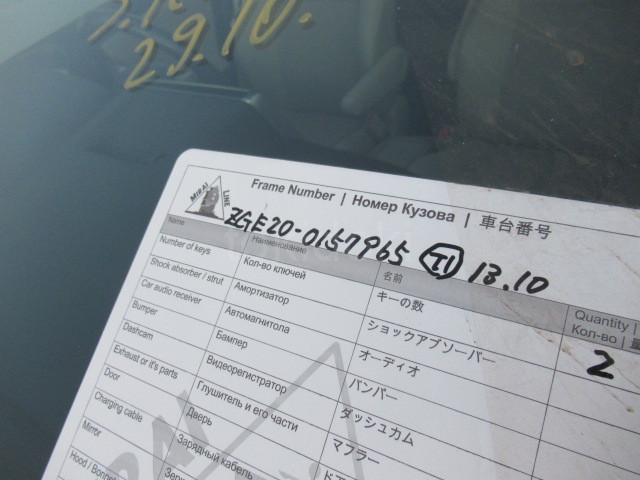 29.10.
MIRAI LINE
Frame Number | Номер Кузова | 車台番号
ZGE20-0157965 T1 13.10
Name Наименование 名前 Quantity
Number of keys Кол-во ключей キーの数 Кол-во 2
Shock absorber / strut Амортизатор ショックアブソーバー
Car audio receiver Автомагнитола オーディオ
Bumper Бампер バンパー
Dashcam Видеорегистратор ダッシュカム
Exhaust or it's parts Глушитель и его части マフラー
Door Дверь
Charging cable Зарядный кабель
Mirror
Hood / Bonnet
MIRAI